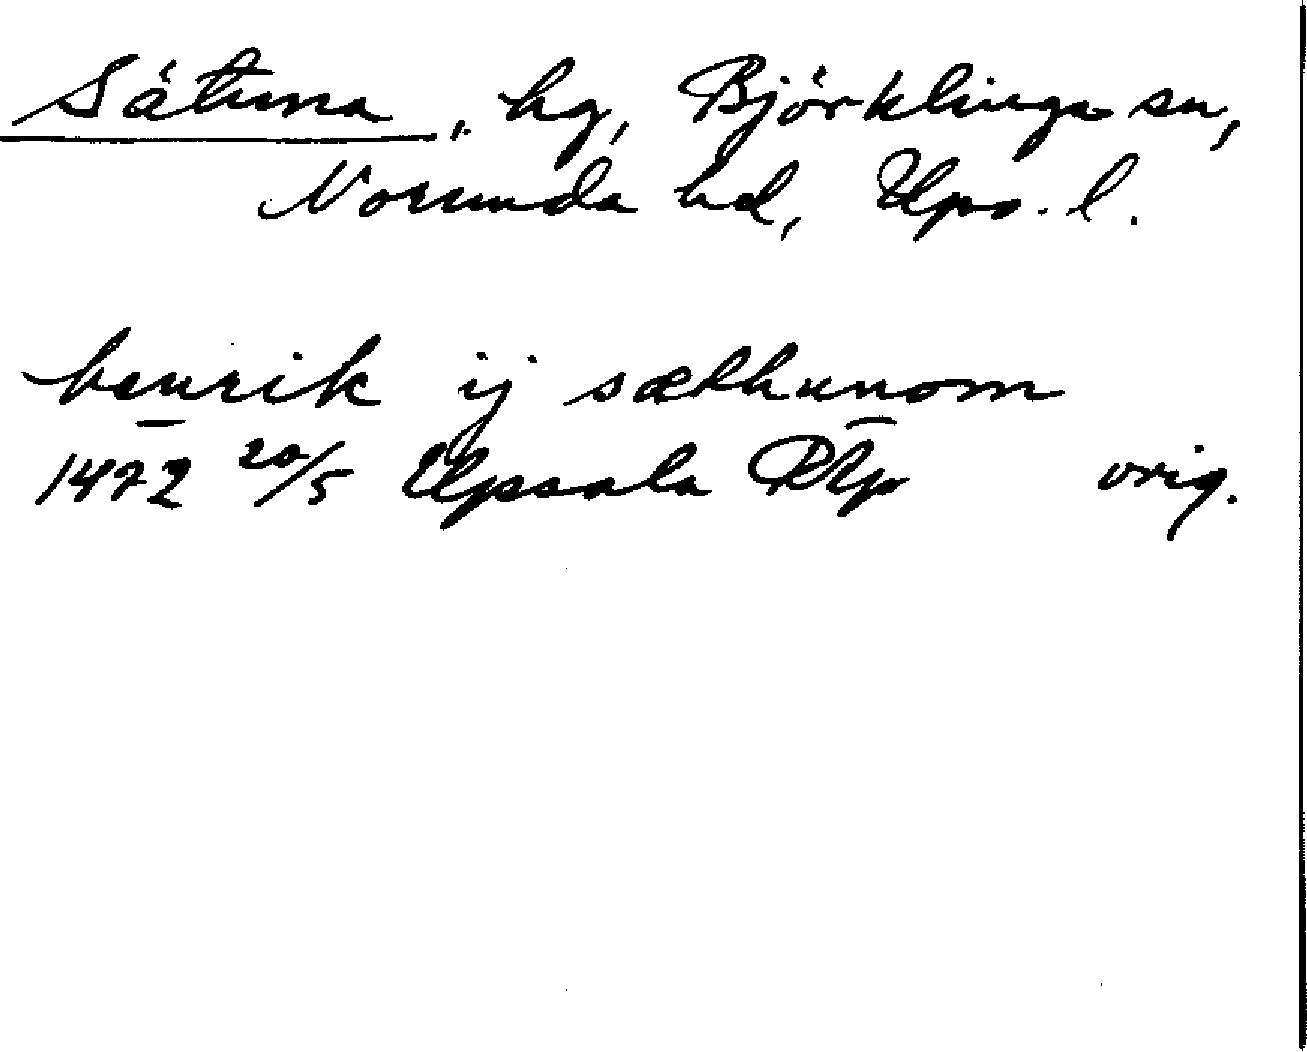 Sätuna, hg, Björklinge sn,
Norunda hd, Upps. l.
henrik ij sæthunom
1472 20/5 Upsala RAp orig.